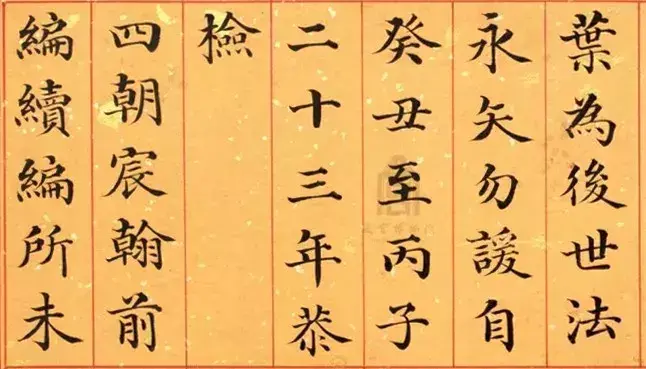 葉為後世法
永矢勿諼自
癸丑至丙子
二十三年恭
檢
四朝宸翰前
編續編所未